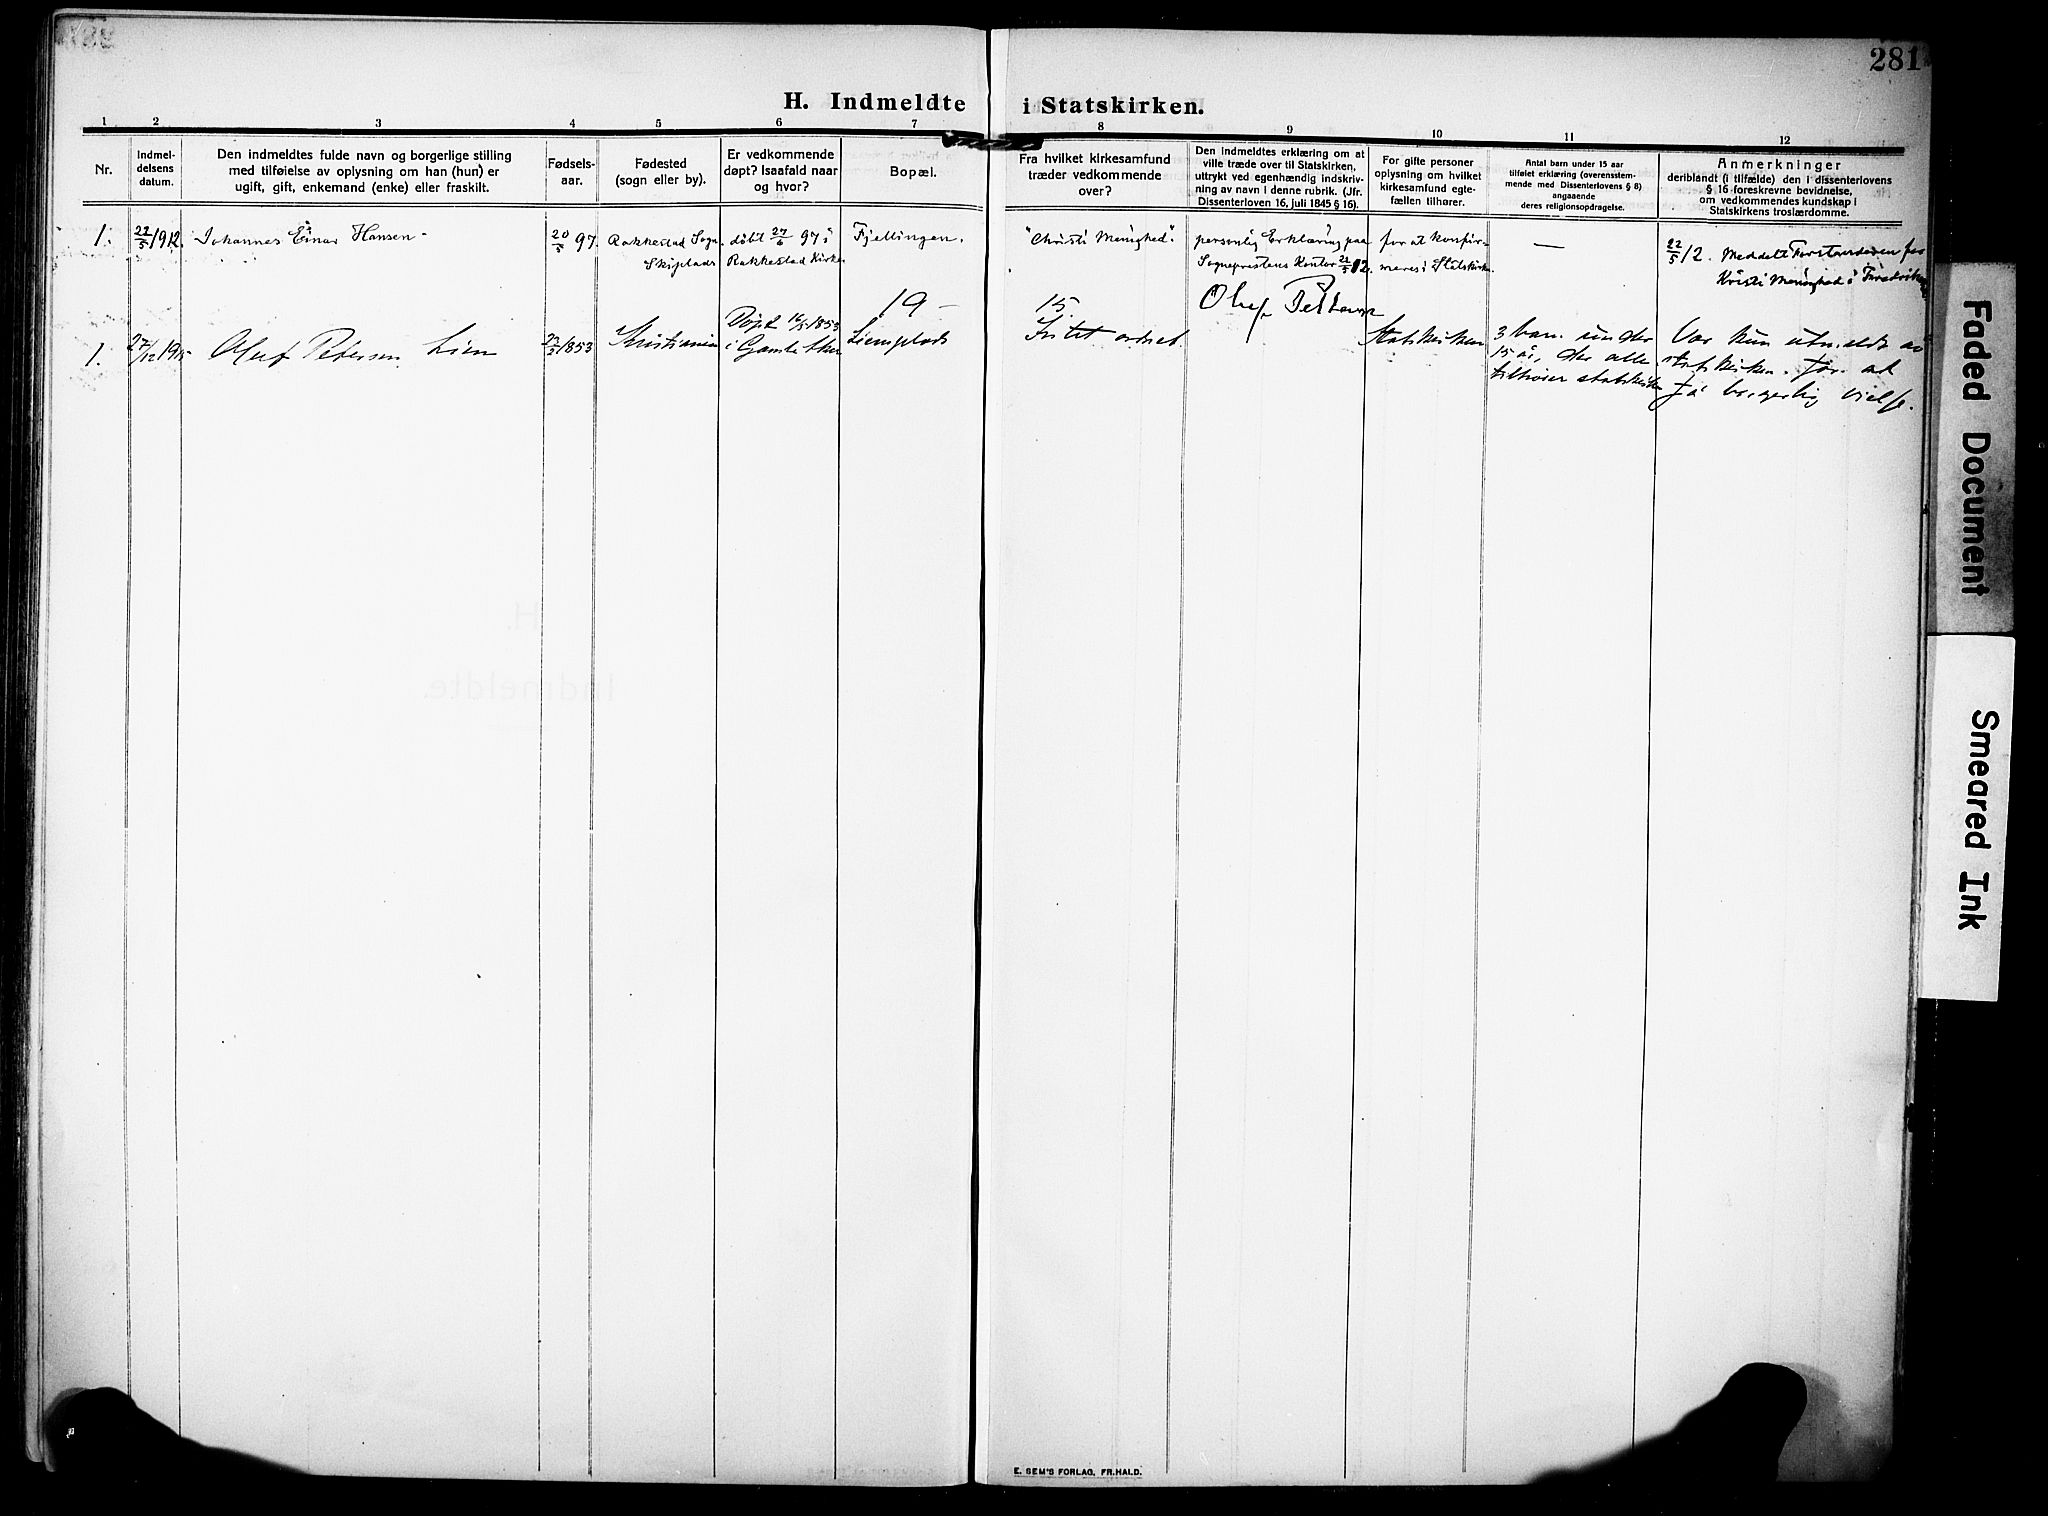 281
H. Indmeldte i Statskirken.
1 2 3 4 5 6 7 8 9 10 11 12
Nr.
Indmel-
delsens
datum.
Den indmeldtes fulde navn og borgerlige stilling
med tilføielse av oplysning om han (hun) er
ugift, gift, enkemand (enke) eller fraskilt.
Fødsels-
aar.
Fødested
(sogn eller by).
Er vedkommende
døpt? Isaafald naar
og hvor?
Bopæl.
Fra hvilket kirkesamfund
træder vedkommende
over?
Den indmeldtes erklæring om at
ville træde over til Statskirken,
uttrykt ved egenhændig indskriv-
ning av navn i denne rubrik. (Jfr.
Dissenterloven 16. juli 1845 § 16).
For gifte personer
oplysning om hvilket
kirkesamfund egte-
fællen tilhører.
Antal barn under 15 aar
tilføiet erklæring (overensstem-
mende med Dissenterlovens § 8)
angaaende
deres religionsopdragelse.
Anmerkninger
deriblandt (i tilfælde) den i dissenterlovens
§ 16 foreskrevne bevidnelse,
om vedkommendes kundskap i
Statskirkens troslærdomme.
1.
22/5 1912.
Johannes Einar Hansen -
20/5 97.
Rakkestad Sogn.
Skiplads
døbt 27/6 97 i
Rakkestad Kirke
Fjellingen.
"Christi Menighed".
personlig Erklæring paa
Sogneprestens Kontor 22/5 12.
for at konfir-
meres i Statskirken.
—
22/5 12. Meddelt Forstanderen for
Kristi Menighed i
19 - 15.
1.
27/12 1915
Oluf Petersen Lien
22/3 1853
Kristiania
Døpt 16/5 1853
i Gamle Aker
Liensplads
Oluf Petersen
Statskirken
3 barn under
15 år, der alle
tilhører statskirken
Var kun utmeldt av
statskirken for at
få borgerlig vielse.
E. SEM'S FORLAG, FR.HALD.
H.
Indmeldte.
Faded Document
Smeared Ink